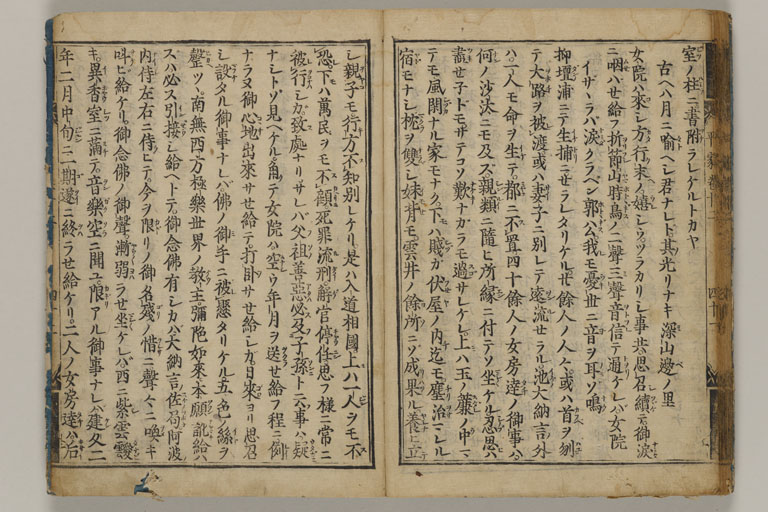 室ノ柱ニ書附ラレケルトカヤ
古ヘハ月ニ喩ヘシ君ナレト其光リナキ深山邊ノ里
女院ハ來シ方行末ノ嬉シウツラカリシ事共思召續テ御涙
ニ咽ハせ給フ折節山時鳥ノ二聲三聲音信テ通ケレハ女院
イザサラハ涙クラベン郭公我モ憂世ニ音ヲ耳ソ鳴
抑壇浦ニテ生捕ニせラレタリケル廿餘人ノ人々或ハ首ヲ刎
テ大路ヲ被渡或ハ妻子ニ別レテ遠流せラル池大納言ノ外
ハ一人モ命ヲ生テ都ニ不置四十餘人ノ女房達ノ御事ハ
何ノ沙汰ニモ及ス親類ニ隨ヒ所縁ニ付テソ坐ケル忍思ハ
盡せ子トモサテコソ歎ナカラモ過サレケレ上ハ玉ノ簾ノ中マ
テモ風閑ナル家モナク下ハ賤カ伏屋ノ内迄モ塵治マレル
宿モナシ枕ヲ雙シ妹背モ雲井ノ餘所ニソ成果ル養ヒ立
シ親子モ行方不知別レケリ是ハ入道相國上ハ一人ヲモ不
恐下ハ萬民ヲモ不顧死罪流刑解官停任思フ様ニ常ニ
被行シカ致處ナリサレハ父祖ノ善惡ハ必及子孫ト云事ハ疑
ナシトソ見ヘケル角テ女院ハ空ウ年月ヲ送ラせ給フ程ニ例
ナラヌ御心地出來サせ給テ打卧サせ給シカ日來ヨリ思召
シ設タル御事ナレハ佛ノ御手ニ被懸タリケル五色ノ絲ヲ
鑿ツヽ南無西方極樂世界ノ敎主彌陀如來本願訛給ハ
スハ必ス引接シ給ヘトテ御念佛有シカハ大納言ノ佐局阿波
内侍左右ニ侍ヒテ今ヲ限リノ御名殘ノ惜ニ聲々ニ喚キ
叫ヒ給ケリ御念佛ノ御聲漸弱ラせ坐ケレハ西ニ紫雲靉
キ異香室ニ滿テ音樂空ニ聞ユ限アル御事ナレハ建久二
年二月中旬ニ一期遂ニ終ラせ給ケリ二人ノ女房達ハ后